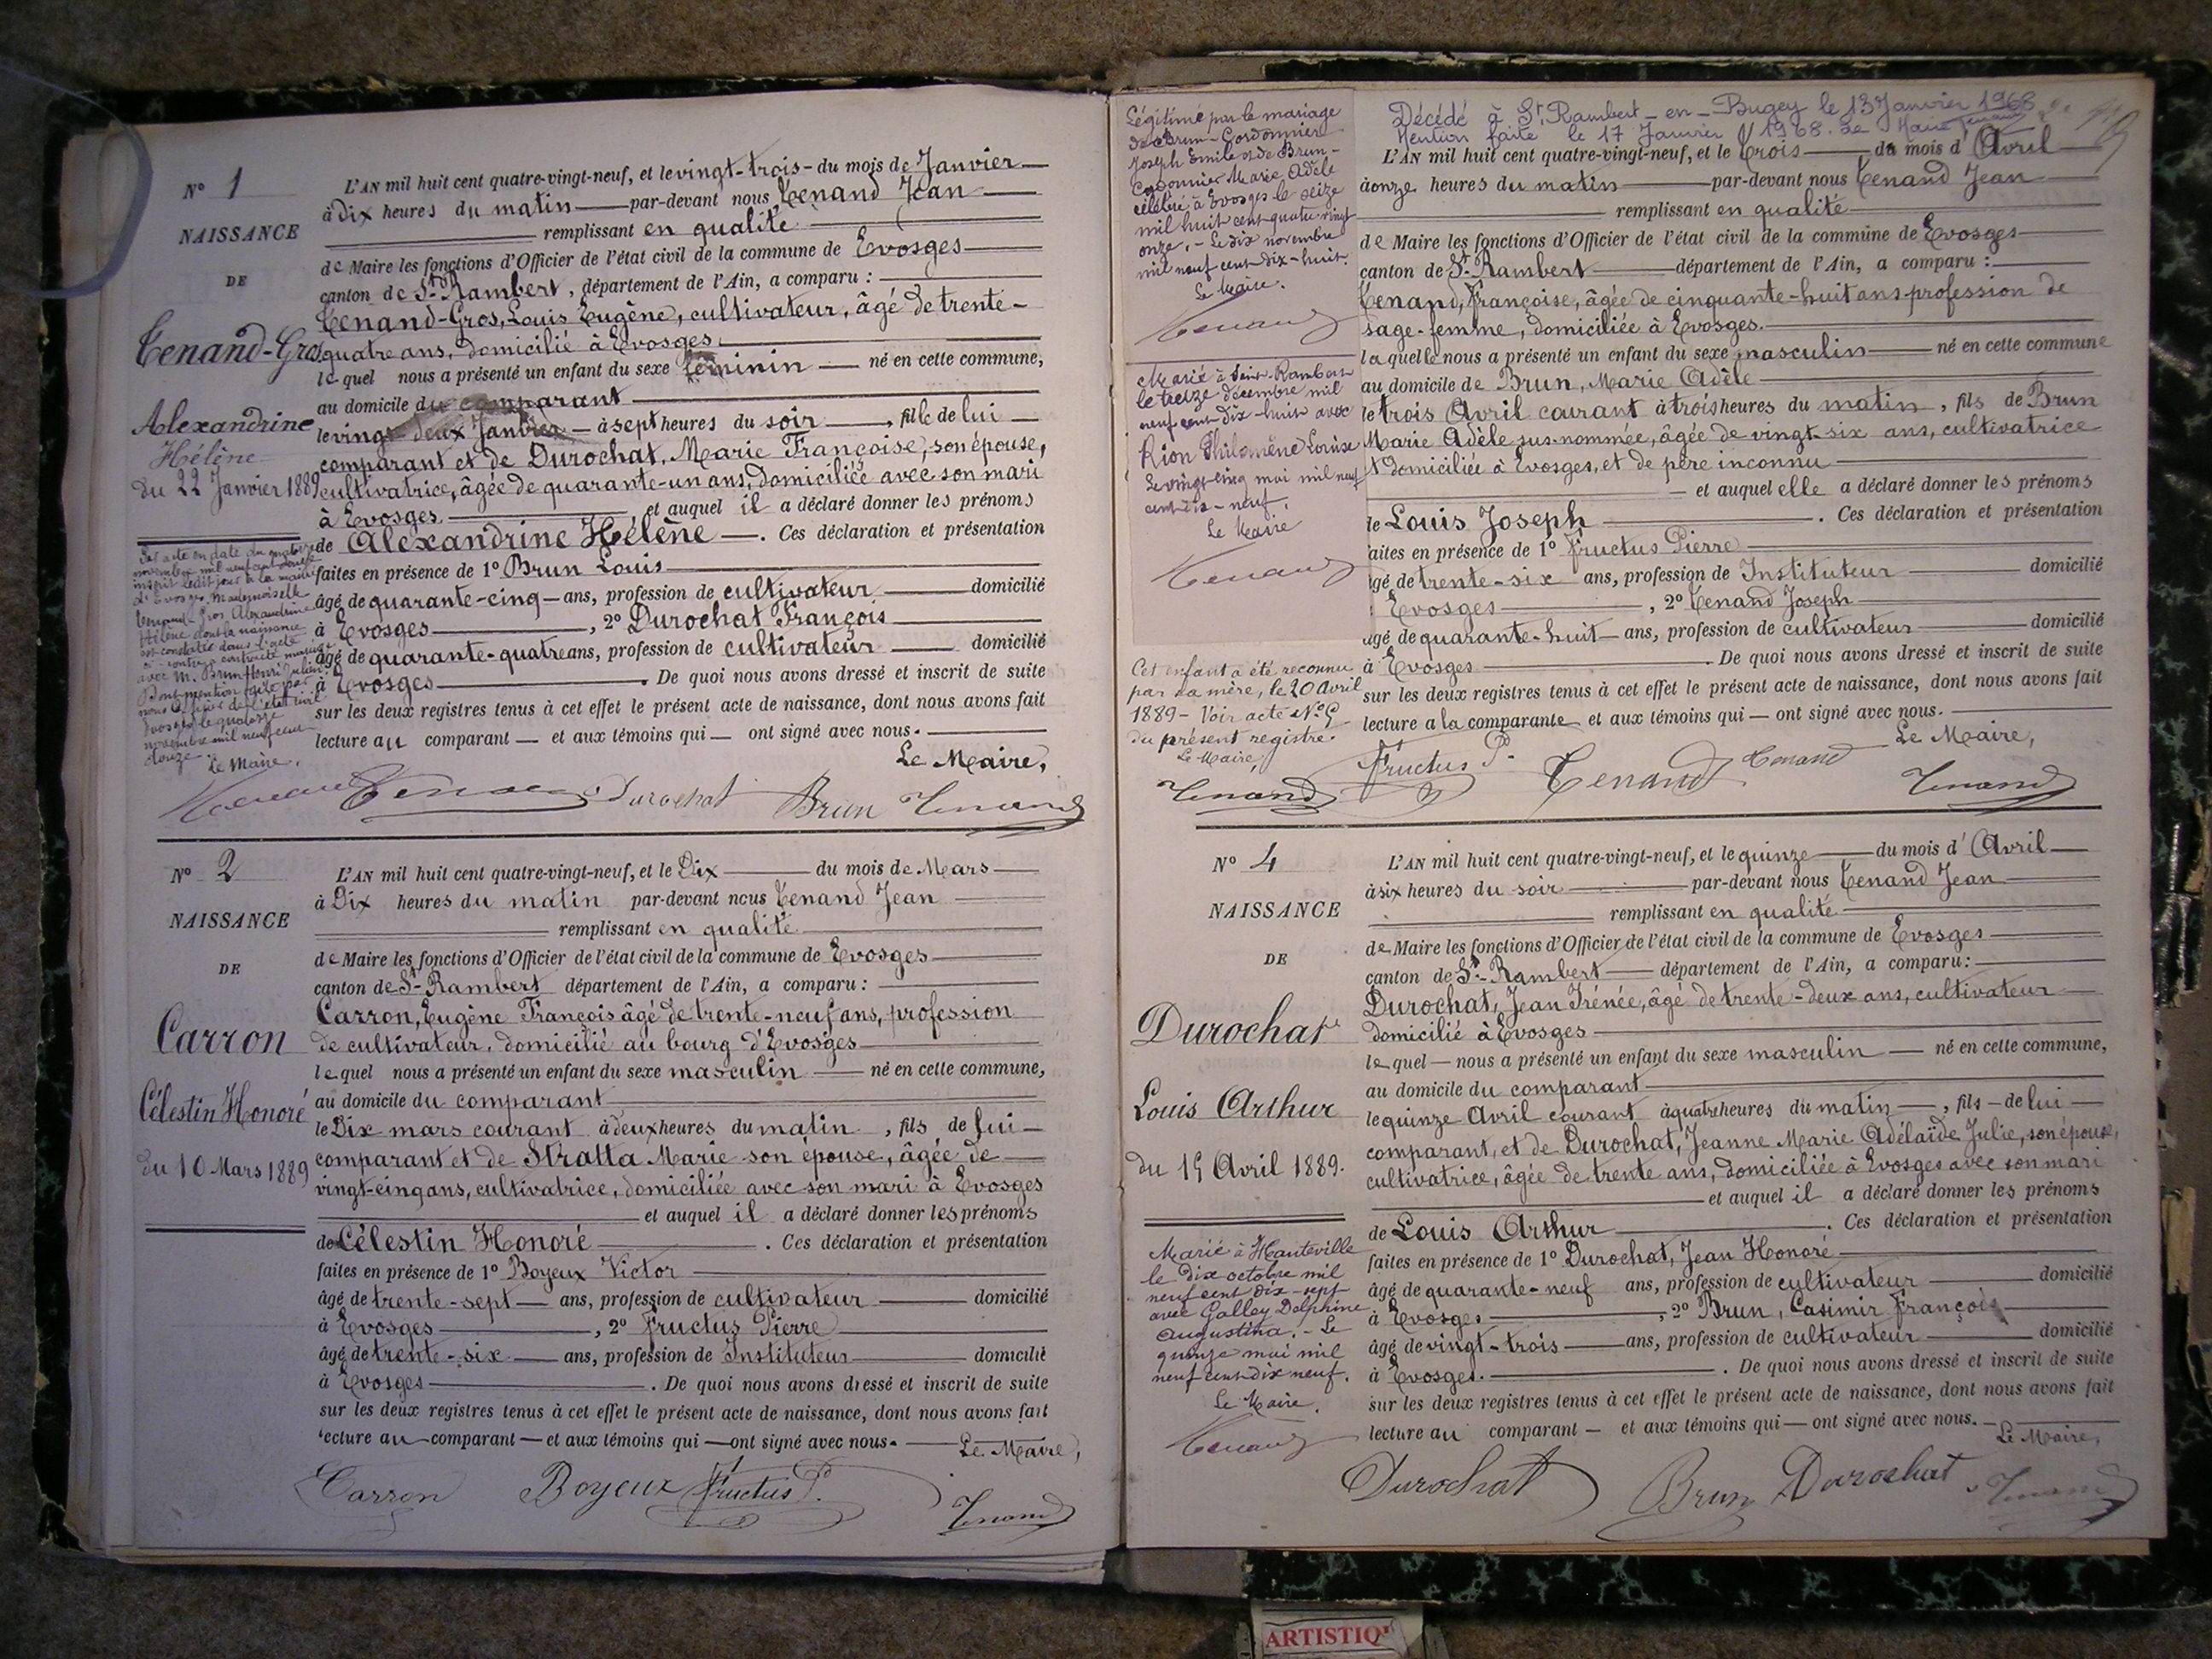 N° 1
NAISSANCE
DE
Tenand-Gros
Alexandrine
Hélène
du 22 Janvier 1889
L'AN mil huit cent quatre-vingt-neuf, et le vingt-trois - du mois de Janvier
à dix heures du matin par-devant nous Tenand Jean
remplissant en qualité
de Maire les fonctions d'Officier de l'état civil de la commune de Evosges
canton de St-Rambert, département de l'Ain, a comparu :
Tenand-Gros, Louis Eugène, cultivateur, âgé de trente-
quatre ans, domicilié à Evosges.
lequel nous a présenté un enfant du sexe féminin né en cette commune,
au domicile du comparant
le vingt-deux Janvier - à sept heures du soir, fille de lui
comparant et de Durochat, Marie Françoise, son épouse,
cultivatrice, âgée de quarante-un ans, domiciliée avec son mari
à Evosges. et auquel il a déclaré donner les prénoms
de Alexandrine Hélène. Ces déclaration et présentation
faites en présence de 1° Brun Louis
âgé de quarante-cinq ans, profession de cultivateur domicilié
à Evosges, 2° Durochat François
âgé de quarante-quatre ans, profession de cultivateur domicilié
à Evosges. De quoi nous avons dressé et inscrit de suite
sur les deux registres tenus à cet effet le présent acte de naissance, dont nous avons fait
lecture au comparant et aux témoins qui ont signé avec nous.
Le Maire,
Par acte en date du quatorze
novembre mil neuf cent douze
inscrit ledit jour à la mairie
d'Evosges, Mademoiselle
Tenand-Gros Alexandrine
Hélène dont la naissance
est constatée dans l'acte
ci-contre a contracté mariage
avec M. Brun Henri Julien.
Dont mention faite par
nous officier de l'état civil
Evosges le quatorze
novembre mil neuf cent
douze.
Le Maire.
Tenand Durochat Brun Tenand
N° 2
NAISSANCE
DE
Carron
Célestin Honoré
du 10 Mars 1889
L'AN mil huit cent quatre-vingt-neuf, et le Dix du mois de Mars
à Dix heures du matin par-devant nous Tenand Jean
remplissant en qualité
de Maire les fonctions d'Officier de l'état civil de la commune de Evosges
canton de St-Rambert département de l'Ain, a comparu :
Carron, Eugène François âgé de trente-neuf ans, profession
de cultivateur, domicilié au bourg d'Evosges
lequel nous a présenté un enfant du sexe masculin né en cette commune,
au domicile du comparant
le Dix mars courant à deux heures du matin, fils de lui
comparant et de Stratta Marie son épouse, âgée de
vingt-cinq ans, cultivatrice, domiciliée avec son mari à Evosges
et auquel il a déclaré donner les prénoms
de Célestin Honoré. Ces déclaration et présentation
faites en présence de 1° Boyeux Victor
âgé de trente-sept ans, profession de cultivateur domicilié
à Evosges, 2° Fructus Pierre
âgé de trente-six ans, profession de Instituteur domicilié
à Evosges. De quoi nous avons dressé et inscrit de suite
sur les deux registres tenus à cet effet le présent acte de naissance, dont nous avons fait
lecture au comparant et aux témoins qui ont signé avec nous.
Le Maire,
Carron Boyeux Fructus P. Tenand
Légitimé par le mariage
de Brun-Cordonnier
Joseph Emile et de Brun-
Cordonnier Marie Adèle
célébré à Evosges le seize
mil huit cent quatre vingt
onze. - Le dix novembre
mil neuf cent dix-huit.
Le Maire.
Tenand
Marié à Saint-Rambert
le treize décembre mil
neuf cent dix-huit avec
Rion Philomène Louise
Le vingt cinq mai mil neuf
cent dix-neuf.
Le Maire
Tenand
Cet enfant a été reconnu
par sa mère, le 20 Avril
1889 - Voir acte N° 5
du présent registre.
Le Maire,
Tenand
Décédé à St Rambert-en-Bugey le 13 Janvier 1968
Mention faite le 17 Janvier 1968. Le Maire
L'AN mil huit cent quatre-vingt-neuf, et le trois du mois d'Avril
à onze heures du matin par-devant nous Tenand Jean
remplissant en qualité
de Maire les fonctions d'Officier de l'état civil de la commune de Evosges
canton de St-Rambert département de l'Ain, a comparu :
Tenand, Françoise, âgée de cinquante-huit ans profession de
sage-femme, domiciliée à Evosges.
laquelle nous a présenté un enfant du sexe masculin né en cette commune
au domicile de Brun, Marie Adèle
le trois Avril courant à trois heures du matin, fils de Brun
Marie Adèle sus-nommée, âgée de vingt-six ans, cultivatrice
t domiciliée à Evosges, et de père inconnu
et auquel elle a déclaré donner les prénoms
de Louis Joseph. Ces déclaration et présentation
aites en présence de 1° Fructus Pierre
âgé de trente-six ans, profession de Instituteur domicilié
Evosges, 2° Tenand Joseph
âgé de quarante-huit ans, profession de cultivateur domicilié
à Evosges. De quoi nous avons dressé et inscrit de suite
sur les deux registres tenus à cet effet le présent acte de naissance, dont nous avons fait
lecture a la comparante et aux témoins qui ont signé avec nous.
Le Maire,
Fructus P. Tenand Tenand Tenand
N° 4
NAISSANCE
DE
Durochat
Louis Arthur
du 15 Avril 1889.
L'AN mil huit cent quatre-vingt-neuf, et le quinze du mois d'Avril
à six heures du soir par-devant nous Tenand Jean
remplissant en qualité
de Maire les fonctions d'Officier de l'état civil de la commune de Evosges
canton de St-Rambert département de l'Ain, a comparu :
Durochat, Jean Irénée, âgé de trente-deux ans, cultivateur
domicilié à Evosges
lequel nous a présenté un enfant du sexe masculin né en cette commune,
au domicile du comparant
le quinze Avril courant à quatre heures du matin, fils de lui
comparant, et de Durochat, Jeanne Marie Adélaïde Julie, son épouse,
cultivatrice, âgée de trente ans, domiciliée à Evosges avec son mari
et auquel il a déclaré donner les prénoms
de Louis Arthur. Ces déclaration et présentation
faites en présence de 1° Durochat, Jean Honoré
âgé de quarante-neuf ans, profession de cultivateur domicilié
à Evosges, 2° Brun, Casimir François
âgé de vingt-trois ans, profession de cultivateur domicilié
à Evosges. De quoi nous avons dressé et inscrit de suite
sur les deux registres tenus à cet effet le présent acte de naissance, dont nous avons fait
lecture au comparant et aux témoins qui ont signé avec nous.
Le Maire,
Marié à Hauteville
le dix octobre mil
neuf cent dix-sept
avec Galley Delphine
Augustina. - Le
quinze mai mil
neuf cent dix neuf.
Le Maire.
Tenand
Durochat Brun Durochat Tenand
ARTISTIQ